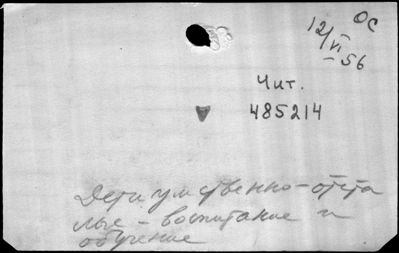 ОС
12/VI-56
Чит.
485214
Дети умственно-отста
лые - воспитание и
обучение